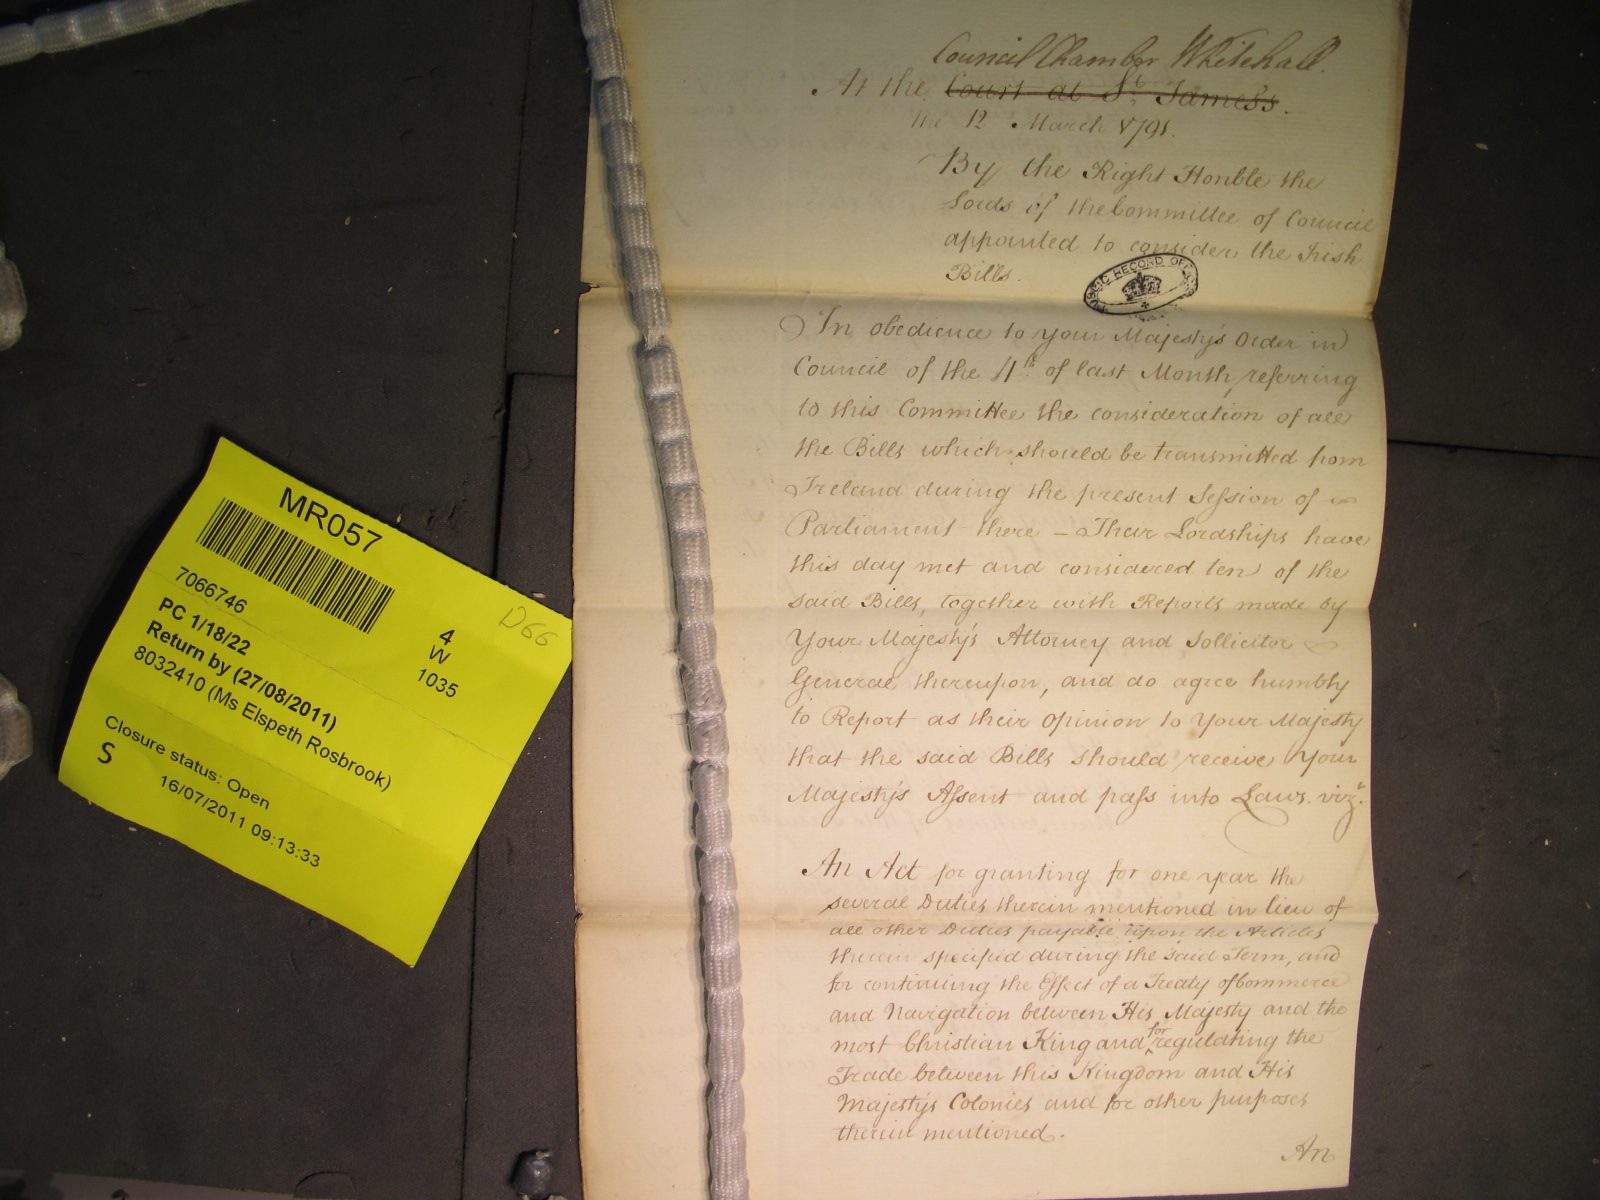 Council Chamber Whitehall.
At the Court at St James's.
the 12 March 1791.
By the Right Honble the
Lords of the Committee of Council
appointed to consider the Irish
Bills.
PUBLIC RECORD OFFICE
In obedience to Your Majesty's Order in
Council of the 4th of last Month, referring
to this Committee the consideration of all
the Bills which should be transmitted from
Ireland during the present Session of
Parliament there – Their Lordships have
this day met and considered ten of the
said Bills, together with Reports made by
Your Majesty's Attorney and Sollicitor
General thereupon, and do agree humbly
to Report as their Opinion to Your Majesty
that the said Bills should receive Your
Majesty's Assent and pass into Laws. vizt.
An Act for granting for one year the
several Duties therein mentioned in lieu of
all other Duties payable upon the Articles
therein specified during the said Term, and
for continuing the Effect of a Treaty of Commerce
and Navigation between His Majesty and the
most Christian King and for regulating the
Trade between this Kingdom and His
Majesty's Colonies and for other purposes
therein mentioned.
An
MR057
7066746
PC 1/18/22
Return by (27/08/2011)
8032410 (Ms Elspeth Rosbrook)
4
W
1035
D66
Closure status: Open
S
16/07/2011 09:13:33